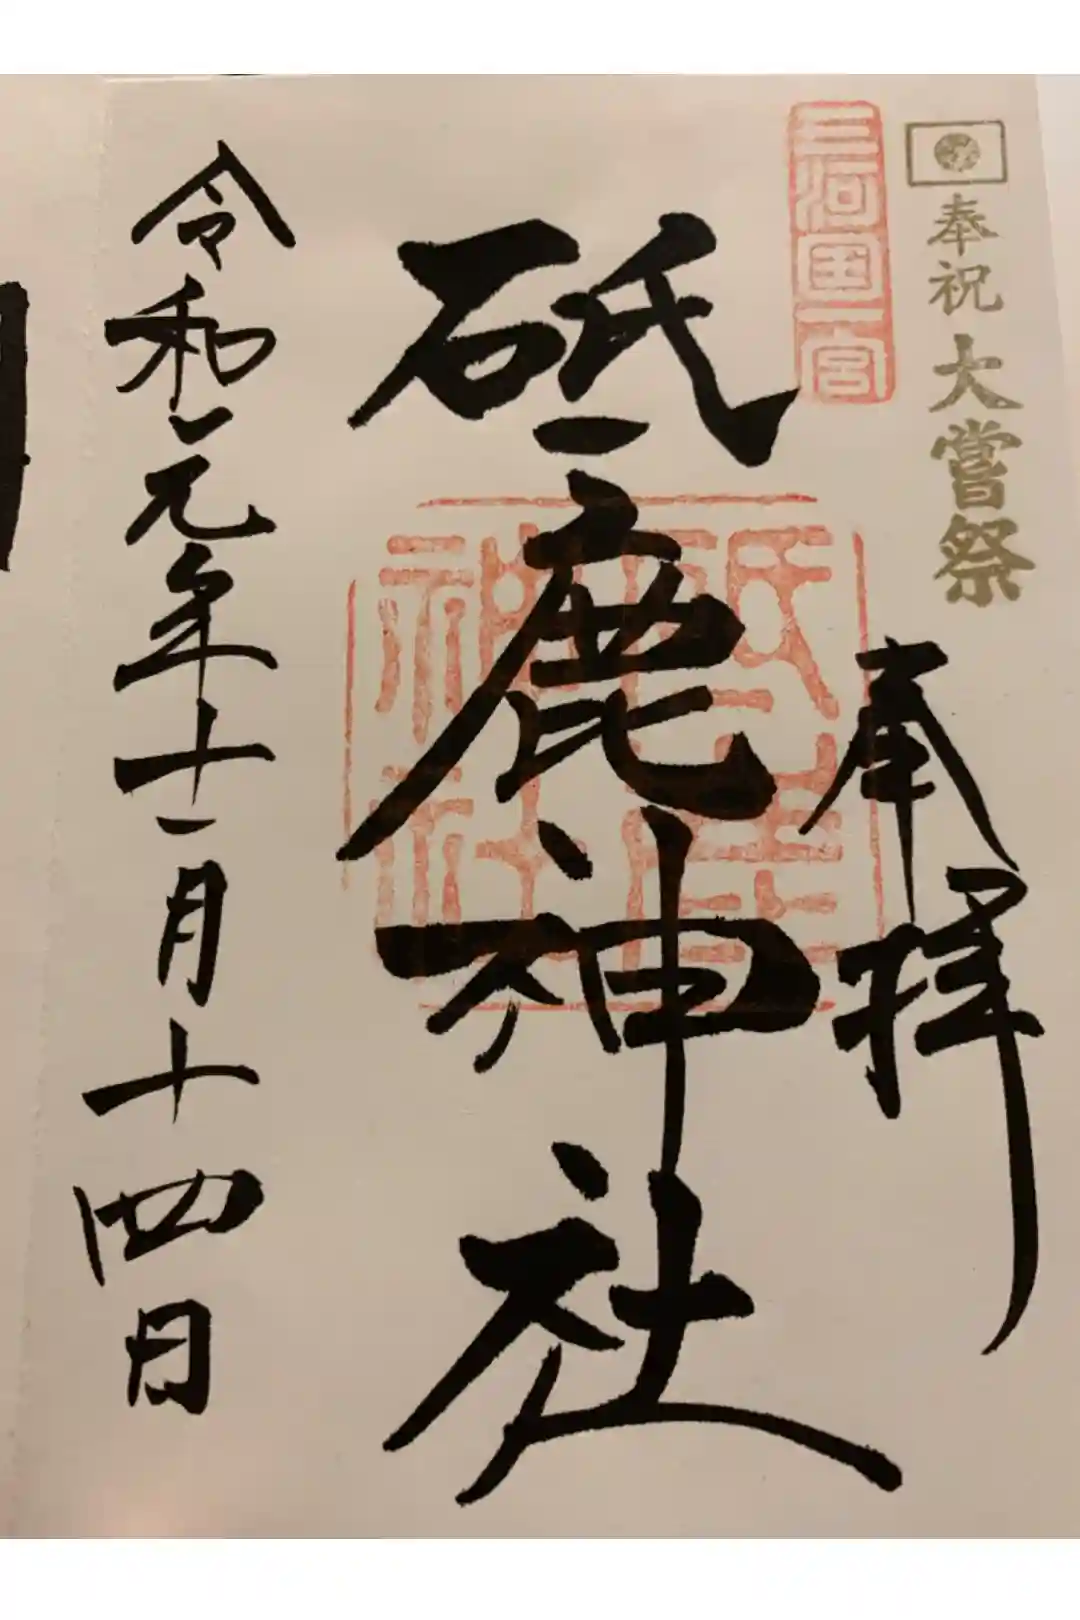 奉祝大嘗祭
奉拝
三河国一宮
砥鹿神社
砥鹿神社
令和元年十一月十四日